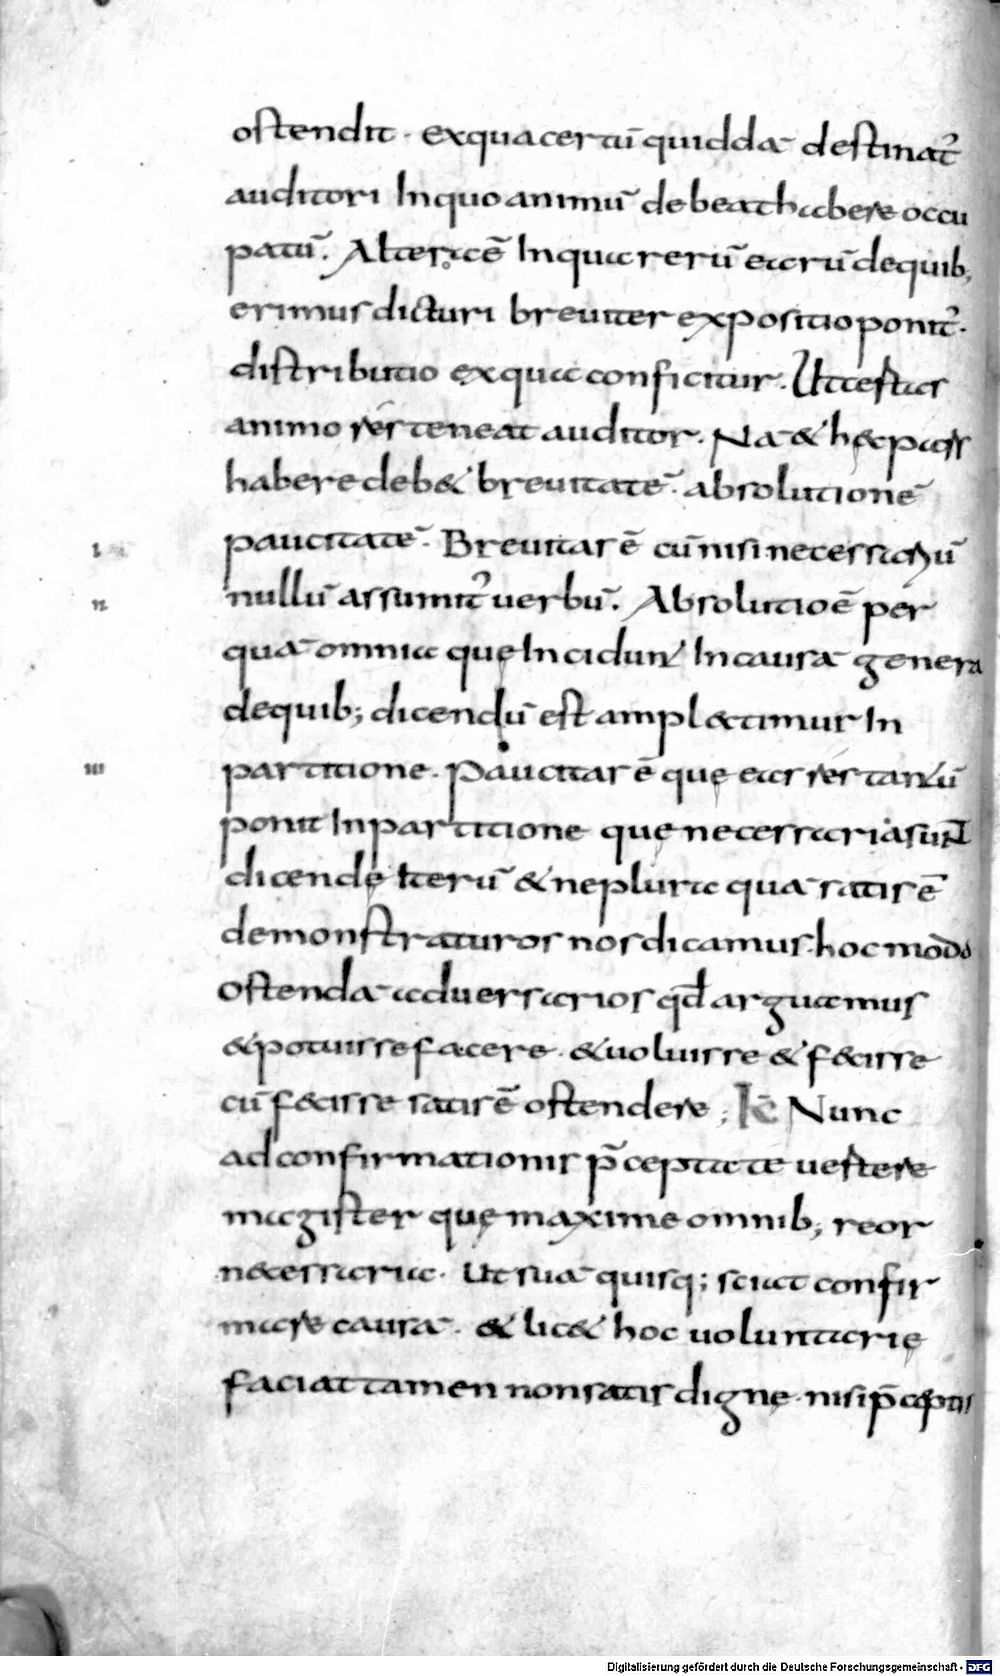 ostendit · exqua certū quiddā destinat᷑
auditori Inquo animū debeat habere occu
patū. Altera ē Inqua rerū earū dequib;
erimus dicturi breuiter expositio ponit᷑ ·
distributio exqua conficitur. Ut estas
animo res teneat auditor. Nā & hęc pars
habere deb& breuitatē. absolutionē
I paucitatē. Breuitas ē cū nisi necessariū
II nullū assumit᷑ uerbū. Absolutio ē per
quā omnia quę Incidunt Incausā genera
dequib; dicendū est amplectimur In
III partitione. Paucitas ē quę eas res tantū
ponit Inpartitione quę necessaria sunt
dicendę Iterū & ne plura quā satis ē
demonstraturos nos dicamus. hoc modo
ostendā aduersarios qđ arguamus
& potuisse facere. & uoluisse & fecisse
cū fecisse satis ē ostendere; K̄ Nunc
ad confirmationis p̄cepta te uertere
magister quę maxime omnib; reor
necessaria. Ut suā quisq; sciat confir
mare causā. & lic& hoc uoluntarię
faciat tamen non satis digne. nisi p̄ceptis
Digitalisierung gefördert durch die Deutsche Forschungsgemeinschaft - DFG